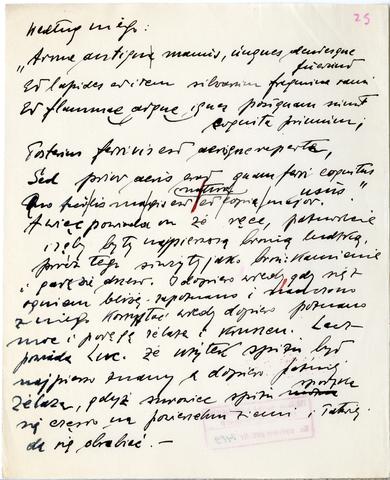 25
według niego:
„Arma antiqua manus, ungues dentesque
fuerunt
Et lapides et item silvarum fragmina rami
Et flammae atque ignes postquam sunt
cognita primum;
Posterius ferri vis est aerisque reperta,
Sed prior aeris erat quam ferri cognitus
usus"
Quo facilis magis est natura et copia major.
A więc powiada on że ręce, paznokcie
i zęby były najpierwszą bronią ludzką,
prócz tego służyły jako broń kamienie
i gałęzie drzew. I dopiero wtedy gdy się z
ogniem bliżej zapoznano i
z niego korzystać wtedy dopiero poznano
moc i potęgę żelaza i kruszcu. Lecz
powiada Luc. że użytek spiżu był
najpierw znany a dopiero później
żelaza, gdyż surowiec spiżu spotyka
się często na powierzchni ziemi i łatwiej
da się obrabiać. —